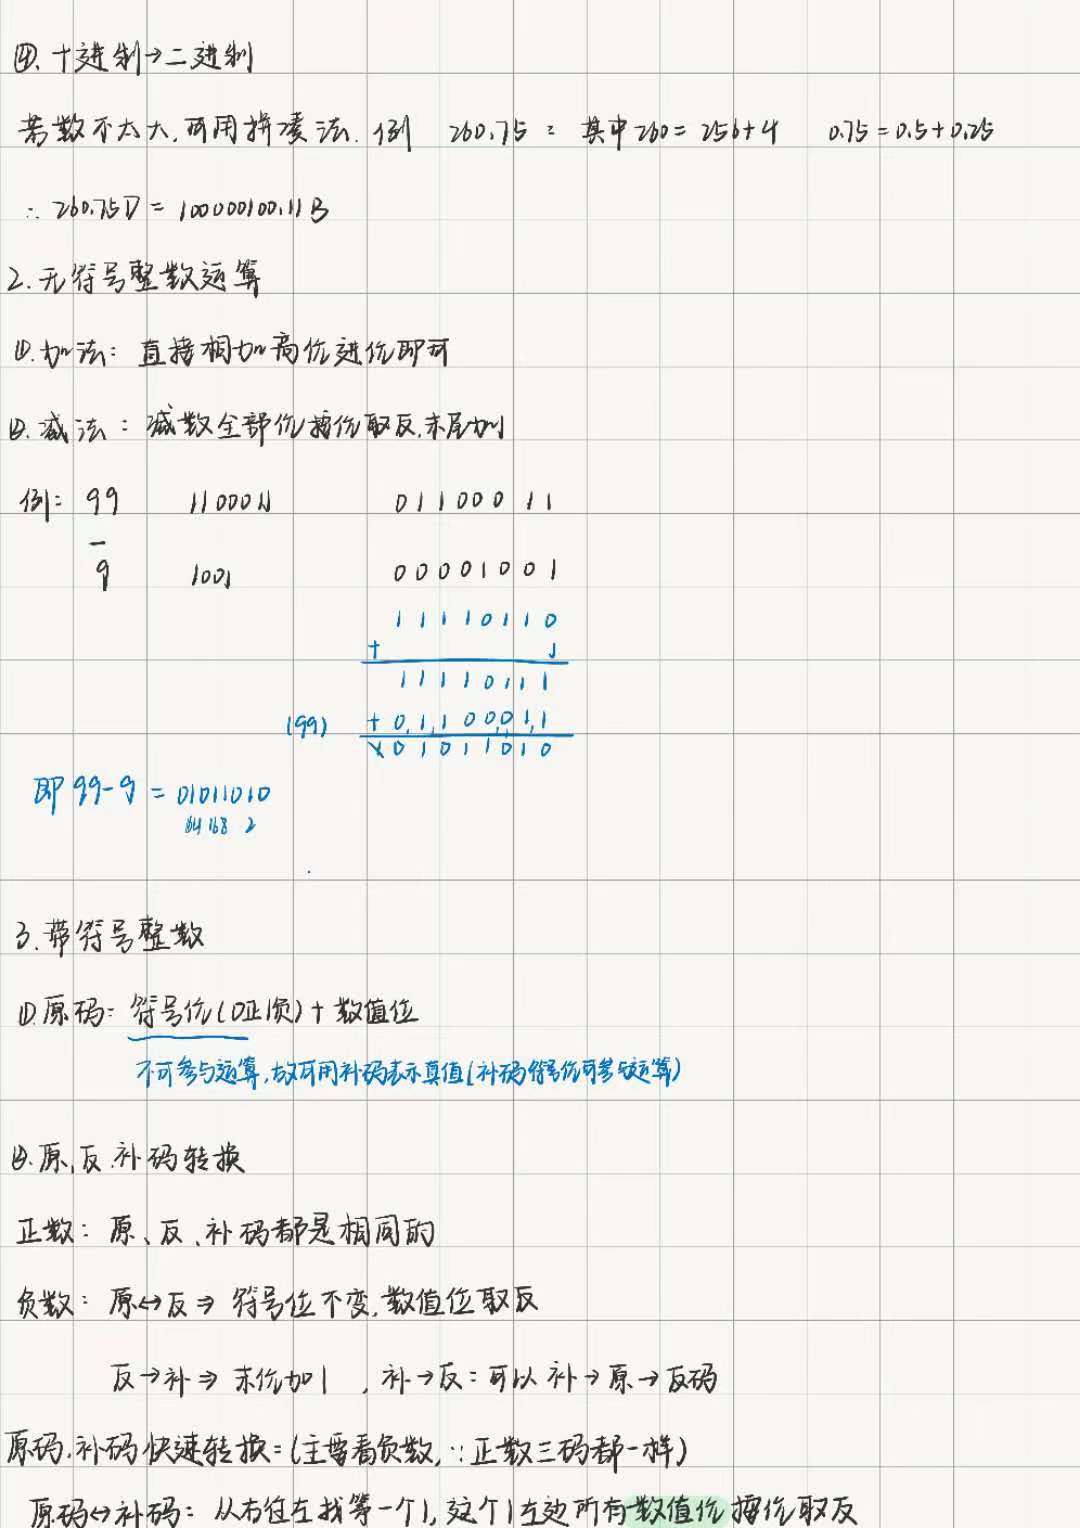 ④.十进制→二进制
若数不太大,可用拼凑法.例 260.75: 其中260=256+4 0.75=0.5+0.25
∴260.75D=100000100.11B
2.无符号整数运算
①.加法: 直接相加高位进位即可
②.减法: 减数全部位按位取反,末尾加1
例: 99 1100011 01100011
-
9 1001 00001001
11110110
+ 1
11110111
(99) + 01100011
1 01011010
即 99-9 = 01011010
64 16 8 2
3.带符号整数
①原码: 符号位(0正1负)+数值位
不可参与运算,故可用补码表示真值(补码符号位可参与运算)
②.原、反、补码转换
正数: 原、反、补码都是相同的
负数: 原↔反⇒ 符号位不变,数值位取反
反→补⇒ 末位加1 ,补→反:可以 补→原→反码
原码,补码快速转换:(主要看负数,∵正数三码都一样)
原码↔补码: 从右往左找第一个1,这个1左边所有数值位按位取反